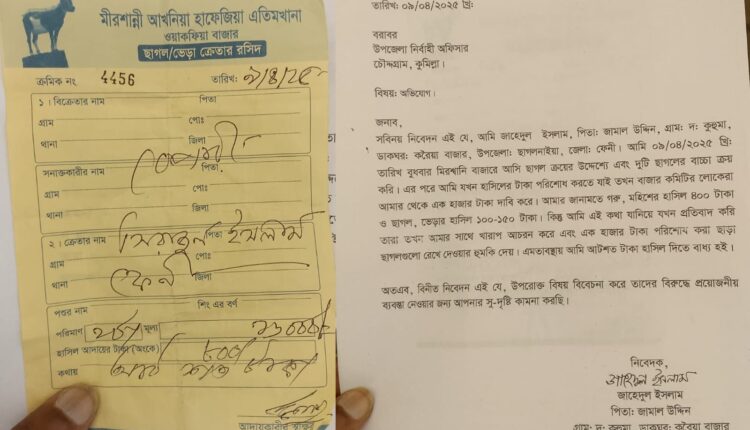 মীরশান্নী আখনিয়া হাফেজিয়া এতিমখানা
ওয়াকফিয়া বাজার
ছাগল/ভেড়া ক্রেতার রসিদ
ক্রমিক নং 4456 তারিখ: ৯/৪/২৫
১। বিক্রেতার নাম পিতা
গ্রাম পোঃ
থানা জিলা
সনাক্তকারীর নাম পিতা
গ্রাম পোঃ
থানা জিলা
২। ক্রেতার নাম পিতা ইসলাম
গ্রাম পোঃ
থানা ফেনী জিলা
পশুর নাম শিং এর বর্ণ
পরিমাণ মূল্য
হাসিল আদায়ের টাকা (অংকে) ৮০০/
কথায় আট শত টাকা
আদায়কারীর স্বাক্ষর
তারিখ: ০৯/০৪/২০২৫ খ্রি:
বরাবর
উপজেলা নির্বাহী অফিসার
চৌদ্দগ্রাম, কুমিল্লা।
বিষয়: অভিযোগ।
জনাব,
সবিনয় নিবেদন এই যে, আমি জাহেদুল ইসলাম, পিতা: জামাল উদ্দিন, গ্রাম: দ: কুহুমা,
ডাকঘর: করৈয়া বাজার, উপজেলা: ছাগলনাইয়া, জেলা: ফেনী। আমি ০৯/০৪/২০২৫ খ্রি:
তারিখ বুধবার মিরশান্নি বাজারে আসি ছাগল ক্রয়ের উদ্দেশ্যে এবং দুটি ছাগলের বাচ্চা ক্রয়
করি। এর পরে আমি যখন হাসিলের টাকা পরিশোধ করতে যাই তখন বাজার কমিটির লোকেরা
আমার থেকে এক হাজার টাকা দাবি করে। আমার জানামতে গরু, মহিশের হাসিল ৪০০ টাকা
ও ছাগল, ভেড়ার হাসিল ১০০-১৫০ টাকা। কিন্তু আমি এই কথা যানিয়ে যখন প্রতিবাদ করি
তারা তখন আমার সাথে খারাপ আচরন করে এবং এক হাজার টাকা পরিশোধ করা ছাড়া
ছাগলগুলো রেখে দেওয়ার হুমকি দেয়। এমতাবস্থায় আমি আটশত টাকা হাসিল দিতে বাধ্য হই।
অতএব, বিনীত নিবেদন এই যে, উপরোক্ত বিষয় বিবেচনা করে তাদের বিরুদ্ধে প্রয়োজনীয়
ব্যবস্থা নেওয়ার জন্য আপনার সু-দৃষ্টি কামনা করছি।
নিবেদক,
জাহেদুল ইসলাম
জাহেদুল ইসলাম
পিতা: জামাল উদ্দিন
গ্রাম: দ: কুহুমা, ডাকঘর: করৈয়া বাজার